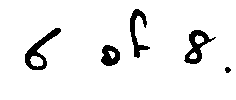 6 of 8.